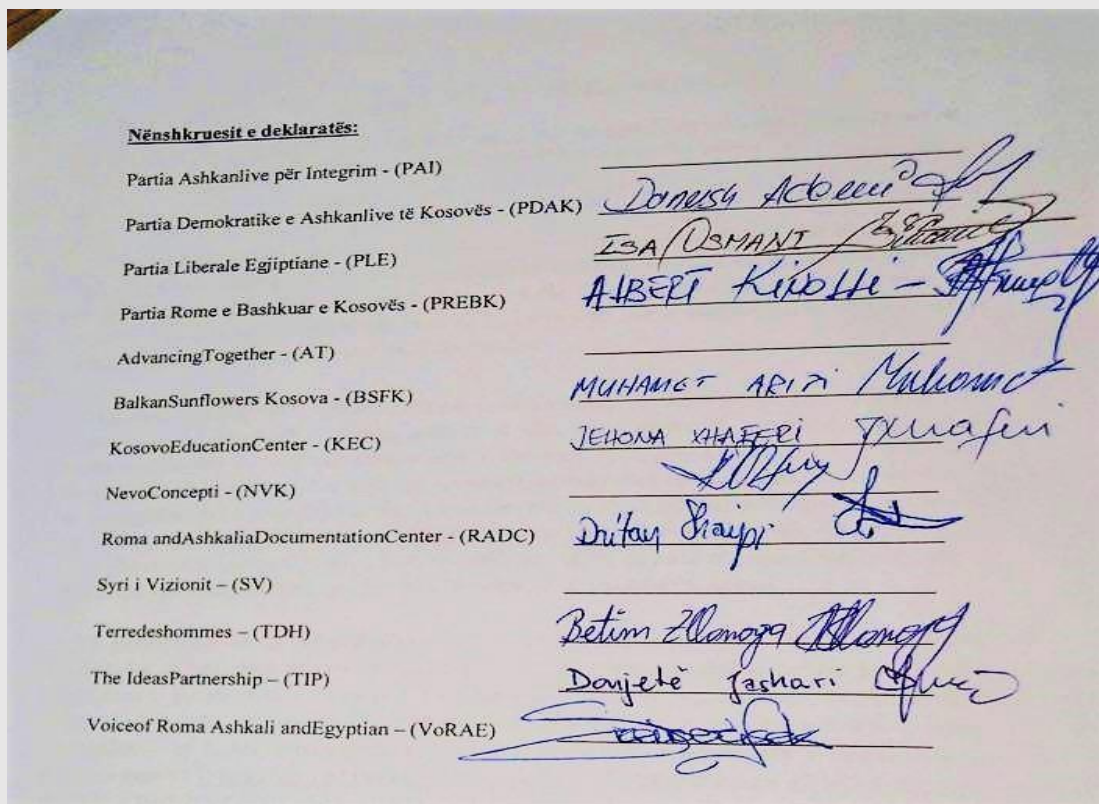 Nënshkruesit e deklaratës:
Partia Ashkanlive për Integrim - (PAI)
Partia Demokratike e Ashkanlive të Kosovës - (PDAK) Danush Ademi
Partia Liberale Egjiptiane - (PLE) ISA OSMANI
Partia Rome e Bashkuar e Kosovës - (PREBK) ALBERT Kinolli -
AdvancingTogether - (AT)
BalkanSunflowers Kosova - (BSFK) MUHAMET ARIFI Muhamet
KosovoEducationCenter - (KEC) JEHONA XHAFERI JXhaferi
NevoConcepti - (NVK)
Roma andAshkaliaDocumentationCenter - (RADC) Dritan
Syri i Vizionit – (SV)
Terredeshommes – (TDH) Betim Zllanoga
The IdeasPartnership – (TIP) Donjetë Jashari
Voiceof Roma Ashkali andEgyptian – (VoRAE)